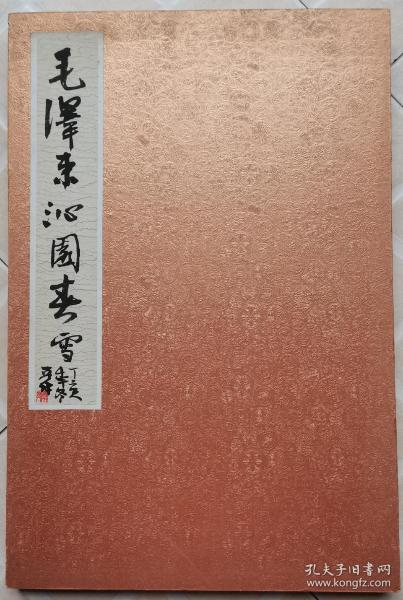 毛澤東沁園春雪
丁亥
年冬
孔夫子旧书网
www.kongfz.com